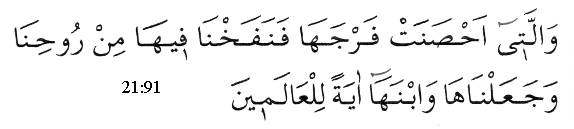 وَالَّتٖٓى اَحْصَنَتْ فَرْجَهَا فَنَفَخْنَا فٖيهَا مِنْ رُوحِنَا
وَجَعَلْنَاهَا وَابْنَهَٓا اٰيَةً لِلْعَالَمٖينَ
21:91